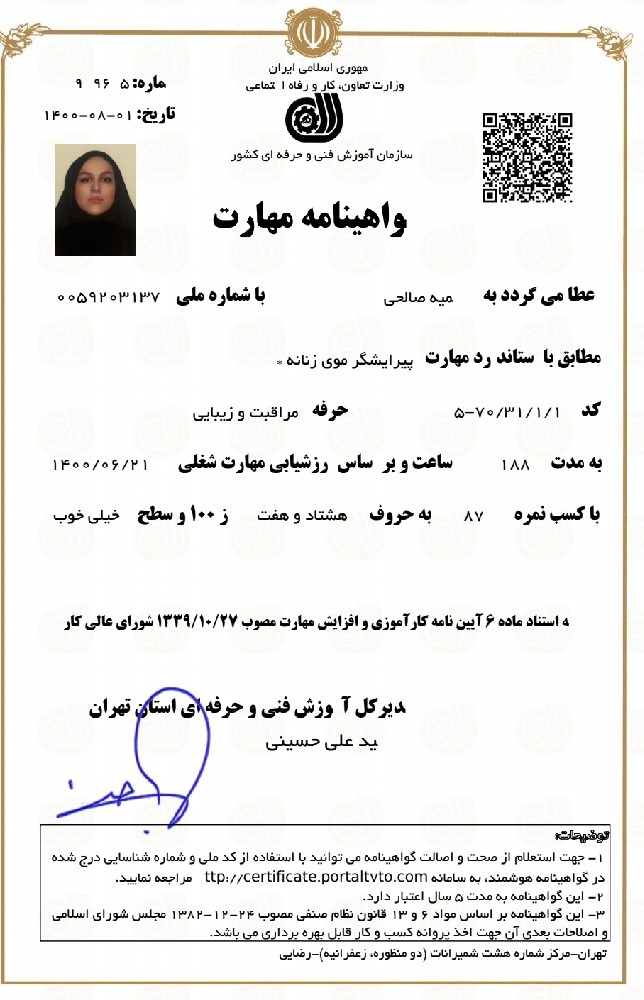 مهوری اسلامی ایران
وزارت تعاون، کار و رفاه ا تماعی
ماره: ۵ ۹۶ ۹
تاریخ: ۱۴۰۰-۰۸-۰۱
سازمان آموزش فنی و حرفه ای کشور
واهینامه مهارت
عطا می گردد به میه صالحی با شماره ملی ۰۰۵۹۲۰۳۱۳۷
مطابق با ستاند رد مهارت پیرایشگر موی زنانه *
کد ۵-۷۰/۳۱/۱/۱ حرفه مراقبت و زیبایی
به مدت ۱۸۸ ساعت و بر ساس رزشیابی مهارت شغلی ۱۴۰۰/۰۶/۲۱
با کسب نمره ۸۷ به حروف هشتاد و هفت ز ۱۰۰ و سطح خیلی خوب
ه استناد ماده ۶ آیین نامه کارآموزی و افزایش مهارت مصوب ۱۳۳۹/۱۰/۲۷ شورای عالی کار
دیرکل آ وزش فنی و حرفه ای استان تهران
ید علی حسینی
توضیحات:
۱- جهت استعلام از صحت و اصالت گواهینامه می توانید با استفاده از کد ملی و شماره شناسایی درج شده
در گواهینامه هوشمند، به سامانه ttp://certificate.portaltvto.com مراجعه نمایید.
۲- این گواهینامه به مدت ۵ سال اعتبار دارد.
۳- این گواهینامه بر اساس مواد ۶ و ۱۳ قانون نظام صنفی مصوب ۲۴-۱۲-۱۳۸۲ مجلس شورای اسلامی
و اصلاحات بعدی آن جهت اخذ پروانه کسب و کار قابل بهره برداری می باشد.
تهران-مرکز شماره هشت شمیرانات (دو منظوره، زعفرانیه)-رضایی